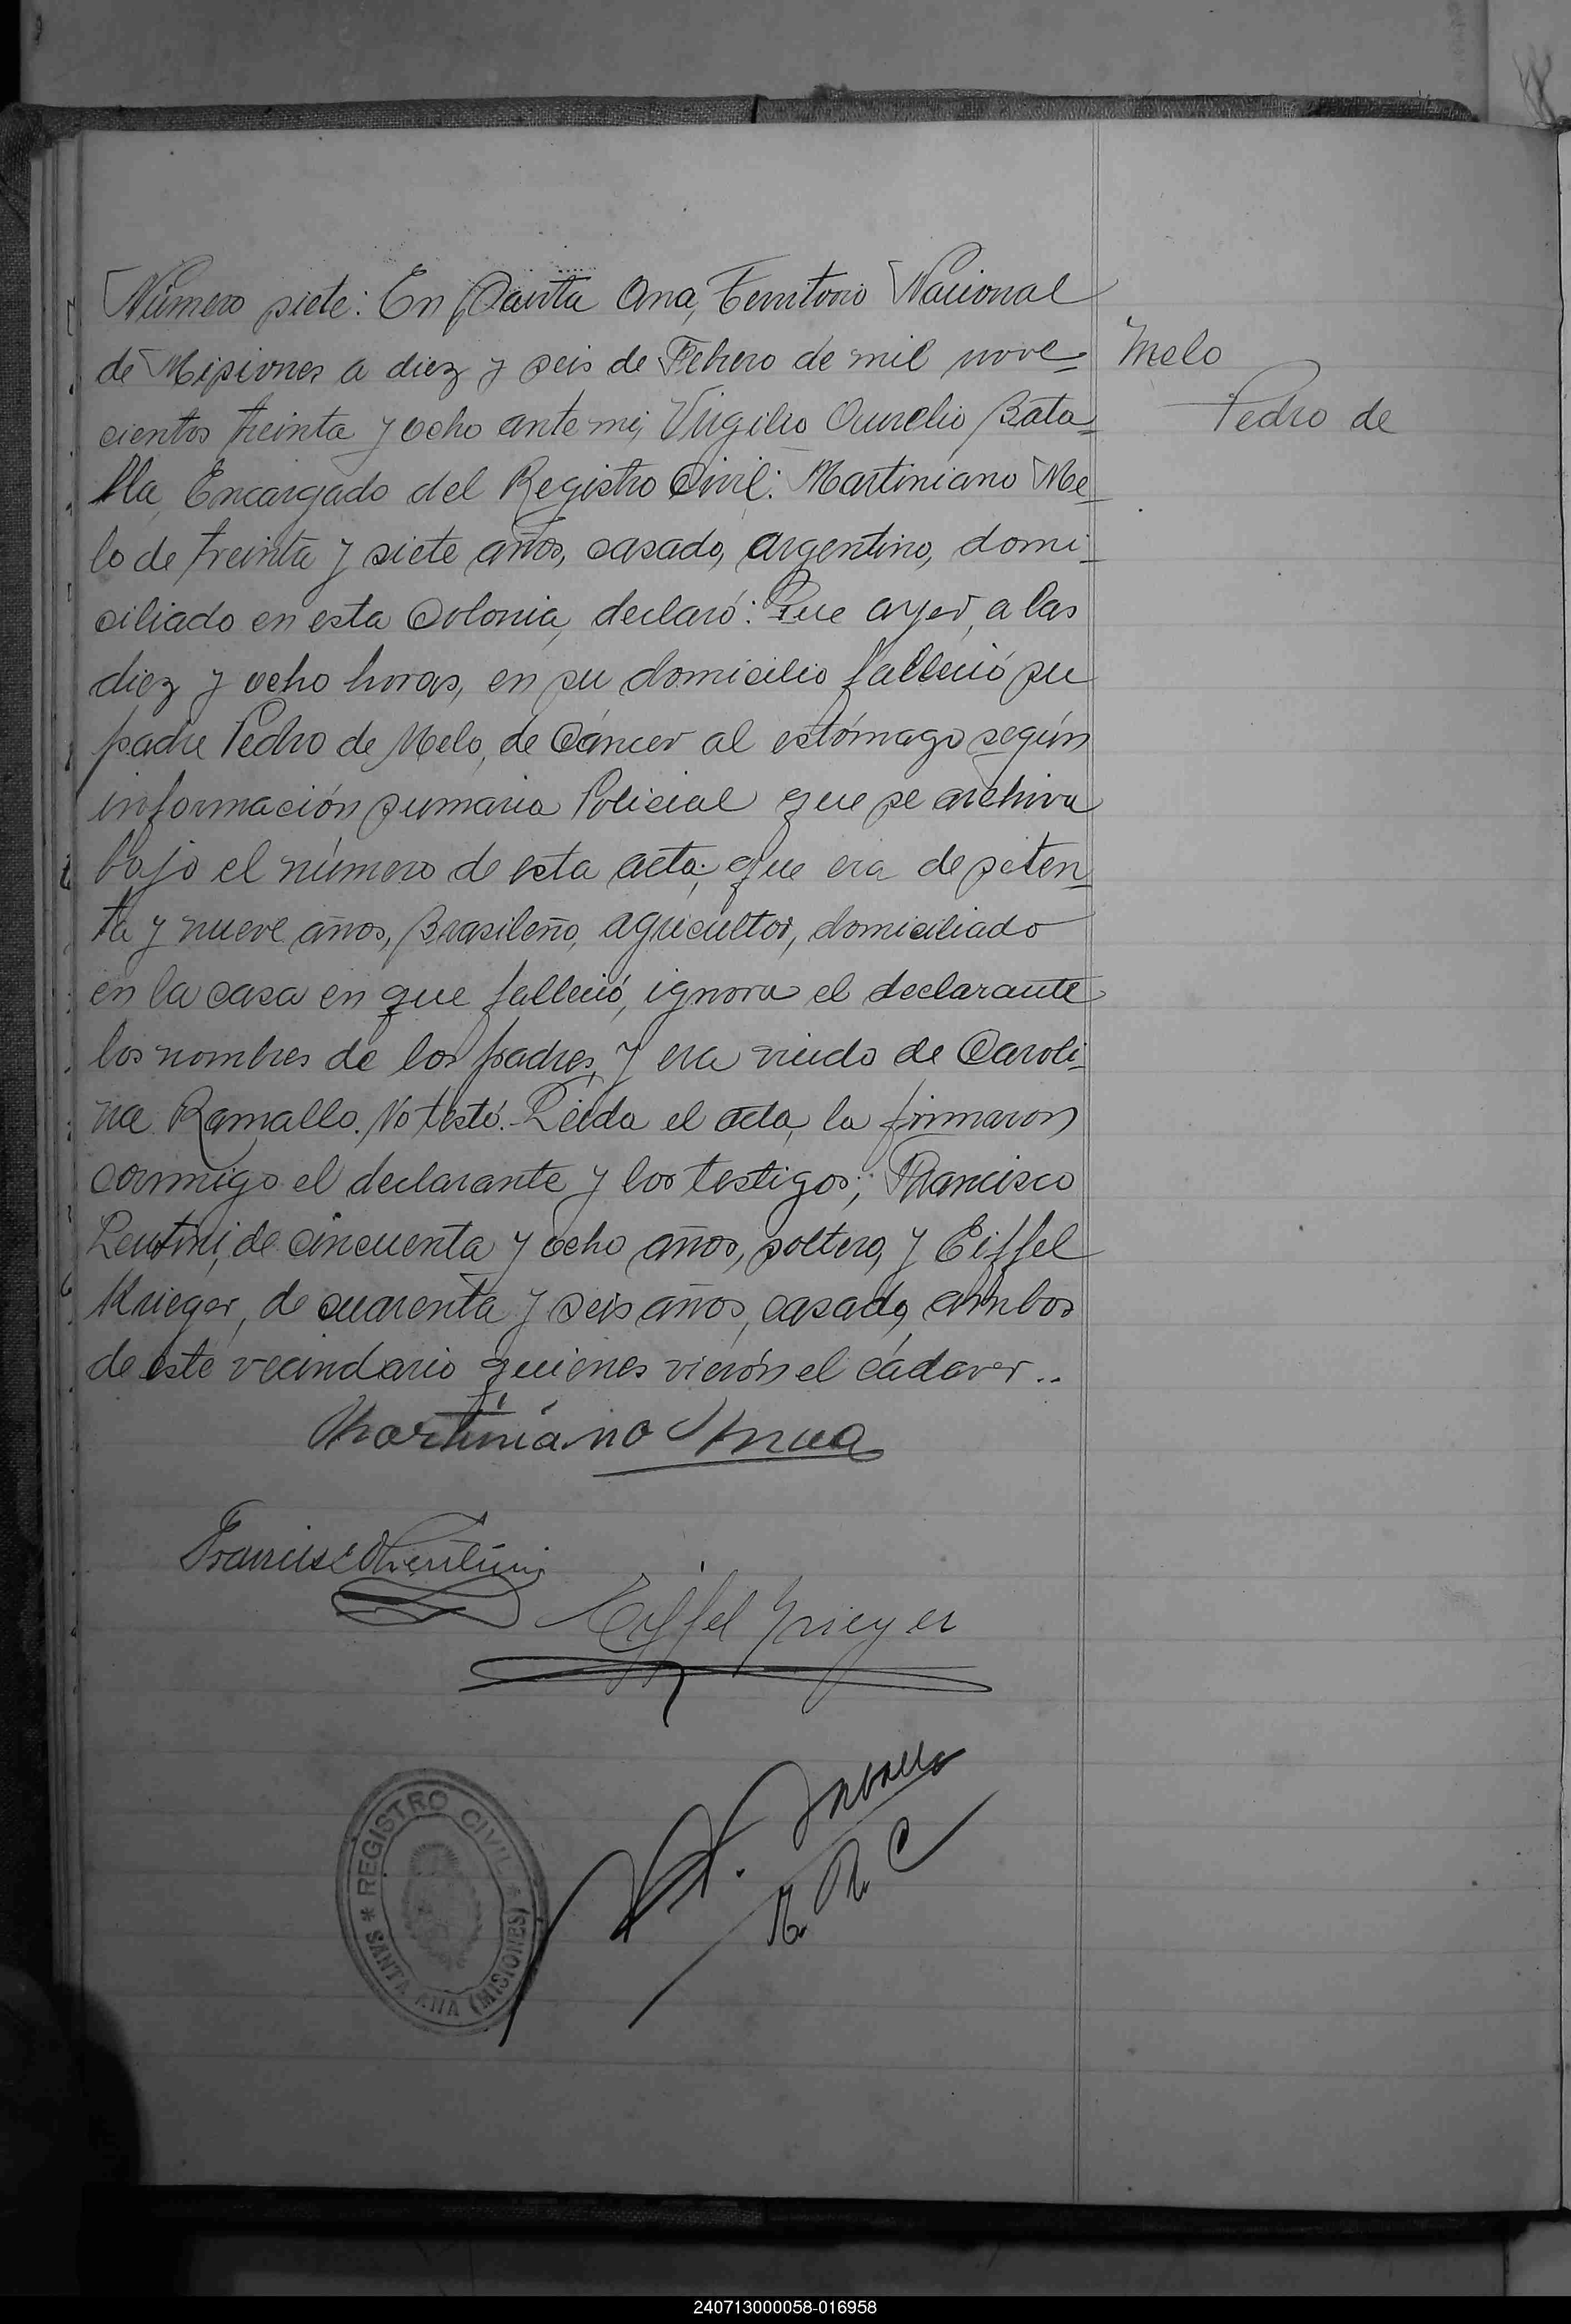 Número siete: En Santa Ana, Territorio Nacional
de Misiones a diez y seis de Febrero de mil nove=
Melo
cientos treinta y ocho ante mi, Virgilio Aurelio Bata=
Pedro de
lla, Encargado del Registro Civil: Martiniano Me-
lo de treinta y siete años, casado, argentino, domi-
ciliado en esta Colonia, declaró: Que ayer, a las
diez y ocho horas, en su domicilio falleció su
padre Pedro de Melo, de Cáncer al estómago según
información sumaria Policial que se archiva
bajo el número de esta acta; que era de seten=
ta y nueve años, Brasileño, agricultor, domiciliado
en la casa en que falleció, ignora el declarante
los nombres de los padres, y era viudo de Caroli-
na Ramallo. No testó. Leída el acta, la firmaron
conmigo el declarante y los testigos; Francisco
Lentini, de cincuenta y ocho años, soltero, y Eiffel
Krieger, de cuarenta y seis años, casado, ambos
de este vecindario quienes vierón el cádaver..
Martiniano
Francisco Lentini
Eiffel Krieger
E. R. C
* REGISTRO CIVIL *
SANTA ANA (MISIONES)
240713000058-016958